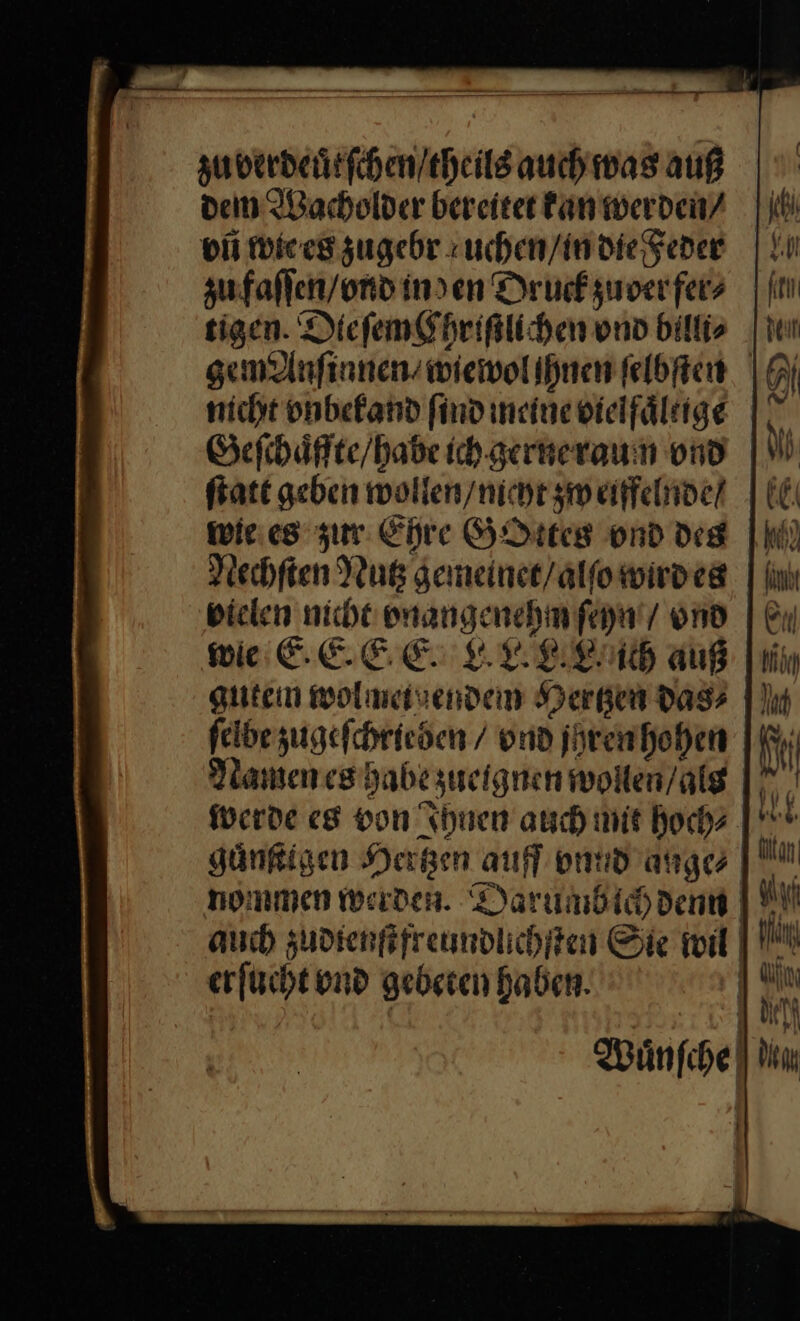 zu verdeuͤtſchen/theils auch was auß
dem Wacholder bereitet kan werden/
vñ wie es zugebrauchen/in die Feder
zu faſſen/vnd in den Druck zuverfer⸗
tigen. Dieſem Chriſtlichen vnd billi⸗
gem Anſinnen/wiewol ihnen ſelbſten
nicht vnbekand ſind meine vielfaͤltige
Geſchaͤffte/habe ich gerne raum vnd
ſtatt geben wollen/nicht zweiffelnde/
wie es zur Ehre GOttes vnd des
Nechſten Nutz gemeinet/alſo wird es
vielen nicht vnangenehm ſeyn / vnd
wie E. E. E. E. L. L. L. L. ich auß
gutem wolmeinendem Hertzen das⸗
ſelbe zugeſchrieben / vnd jhren hohen
Namen es habe zueignen wollen/als
werde es von Ihnen auch mit hoch⸗
guͤnſtigen Hertzen auff vnnd ange⸗
nommen werden. Darumb ich denn
auch zudienſtfreundlichſten Sie wil
erſucht vnd gebeten haben.
Wuͤnſche